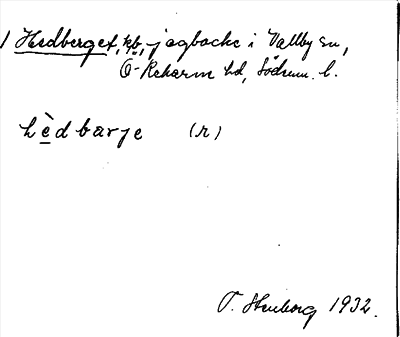 1 Hedberget, kb, jagbacke i Vallby sn,
Ö-Rekarne hd, Söderm. l.
hèdbarje (r)
1932.